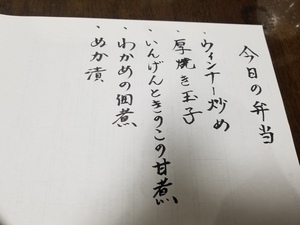 今日の弁当
・ウィンナー炒め
・厚焼き玉子
・いんげんときのこの甘煮
・わかめの佃煮
・ぬか漬